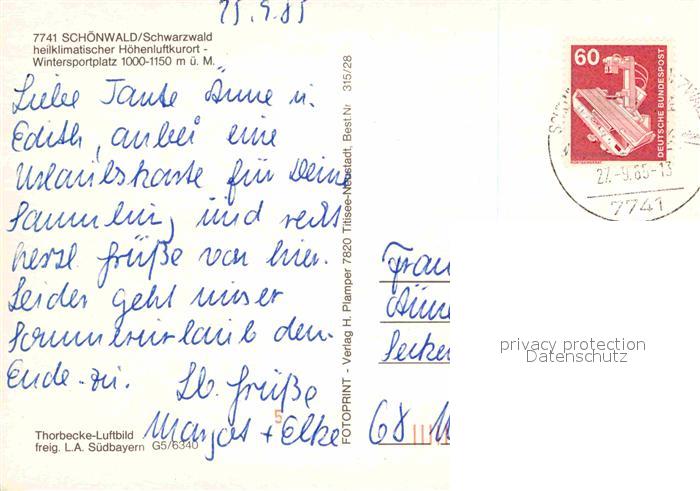 25.9.85
7741 SCHÖNWALD/Schwarzwald
heilklimatischer Höhenluftkurort -
Wintersportplatz 1000-1150 m ü. M.
Liebe Tante Änne u.
Edith, anbei eine
Urlaubskarte für Deine
Sammlung, und recht
herzl. Grüße von hier.
Leider geht unser
Sommerurlaub dem
Ende zu. Lb. Grüße
Margot + Elke
Thorbecke-Luftbild
freig. L.A. Südbayern G5/6340
FOTOPRINT - Verlag H. Plamper 7820 Titisee-Neustadt, Best.Nr 315/28
60
DEUTSCHE BUNDESPOST
27.-9.85-13
7741
Frau
Änne
68
privacy protection
Datenschutz